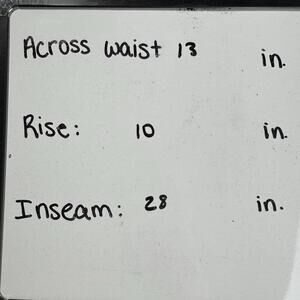 Across waist 13 in.
Rise: 10 in.
Inseam: 28 in.